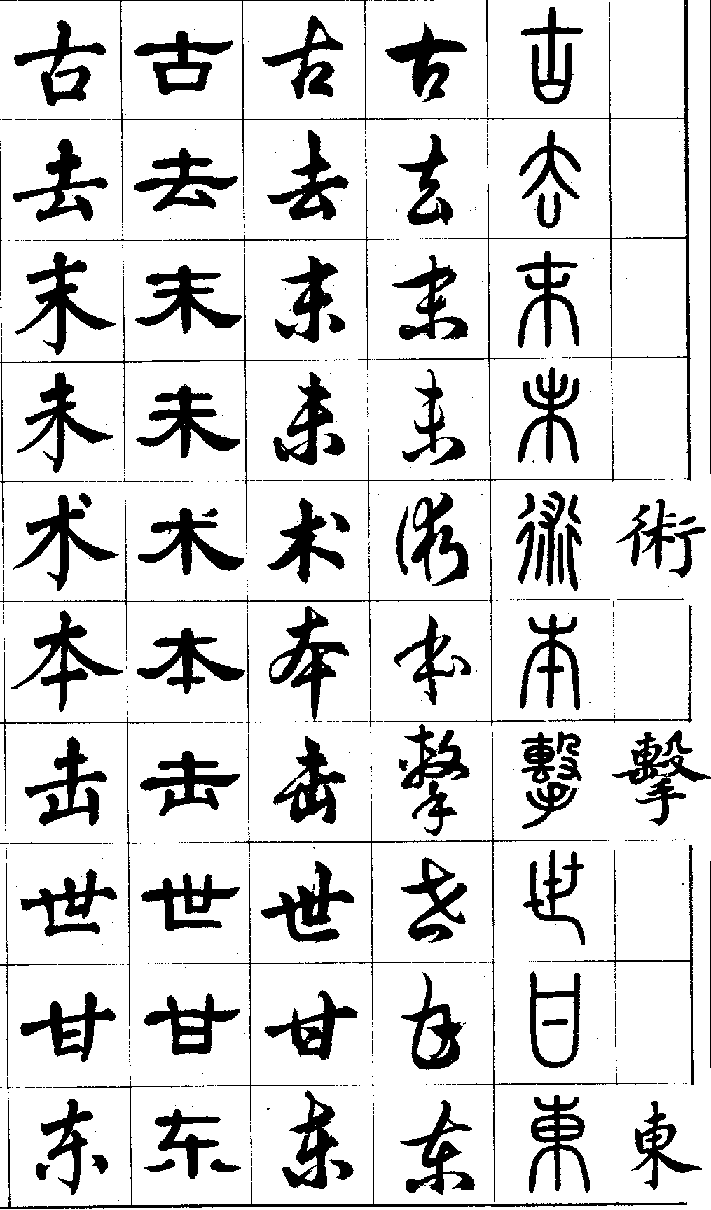 古 古 古 古 古
去 去 去 去 去
末 末 末 末 末
未 未 未 未 未
术 术 术 術 術 術
本 本 本 本 本
击 击 击 擊 擊 擊
世 世 世 世 世
甘 甘 甘 甘 甘
东 东 东 东 東 東